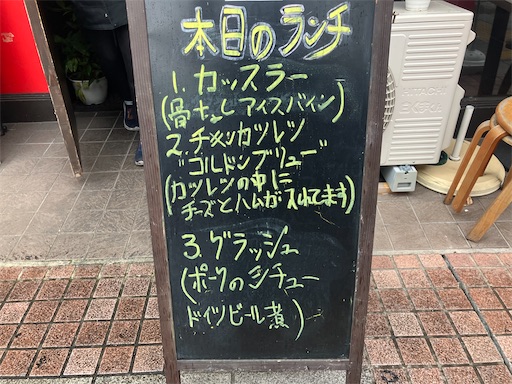 本日のランチ
1. カッスラー
(骨なし アイスバイン)
2. チキンカツレツ
"ゴルドンブリュー"
(カツレツの中に
チーズとハムが入れてます)
3. グラッシュ
(ポークのシチュー
ドイツビール煮)
HITACHI